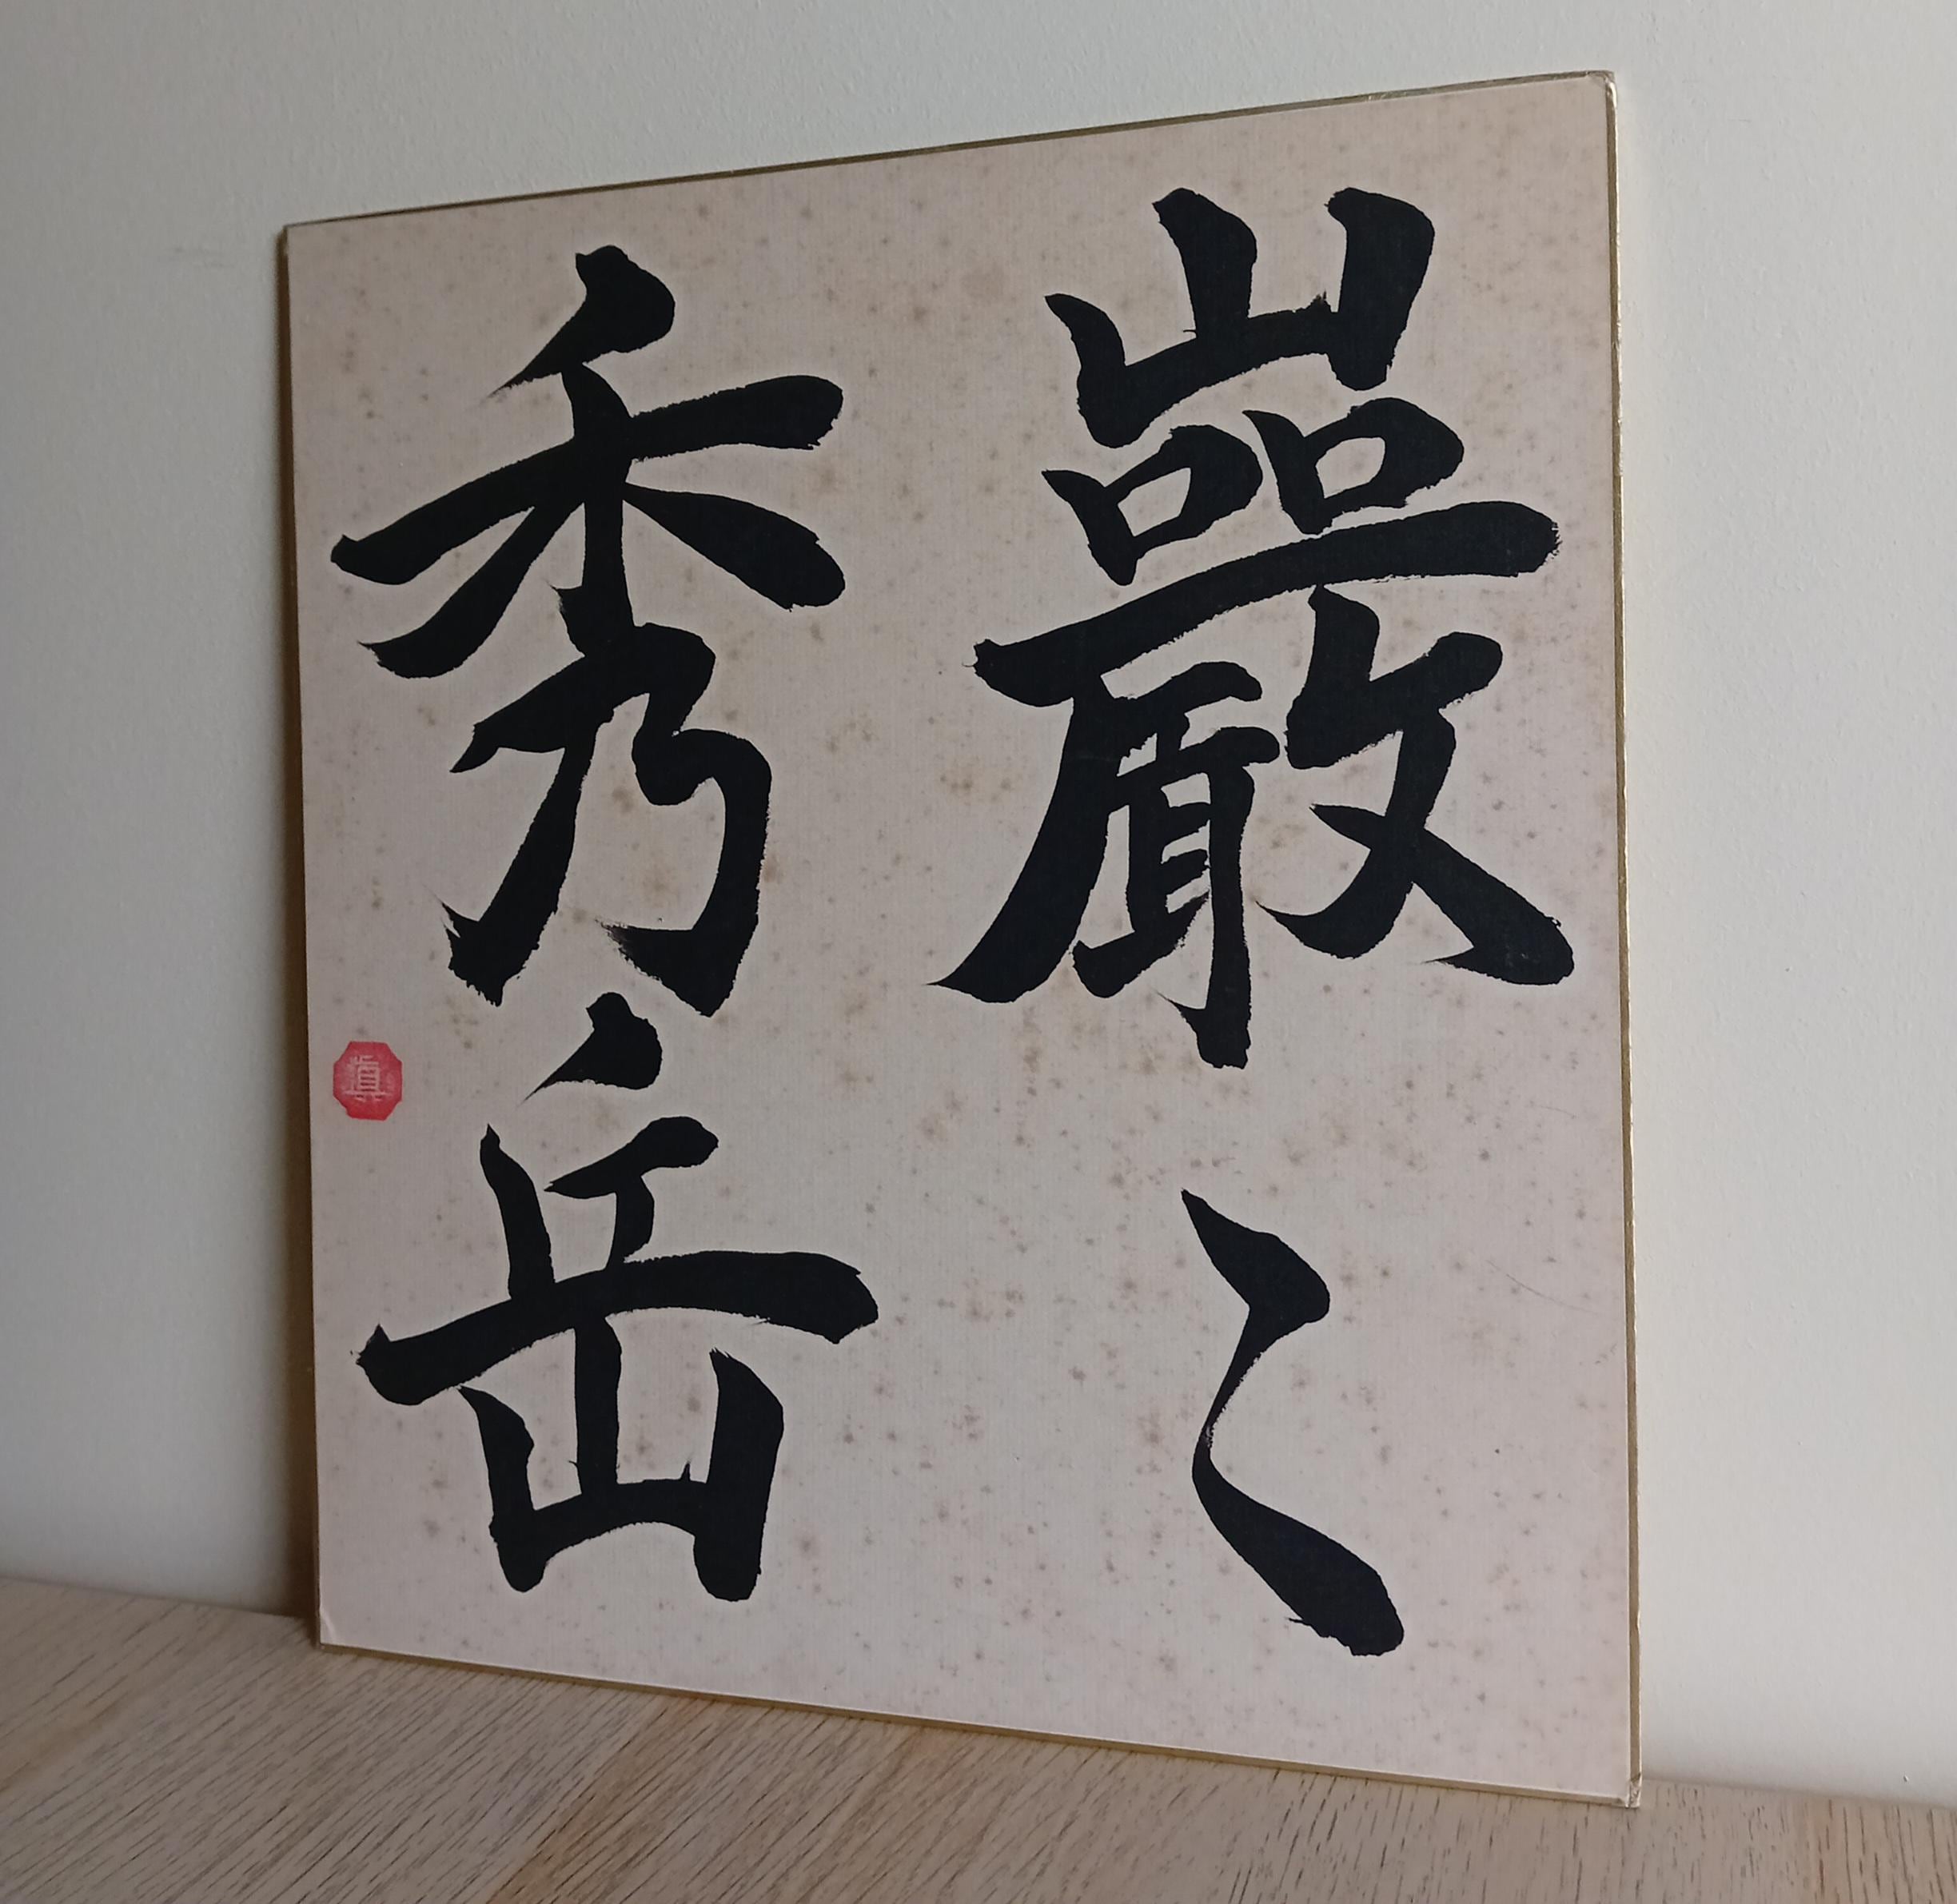 巖〱
秀岳
眞